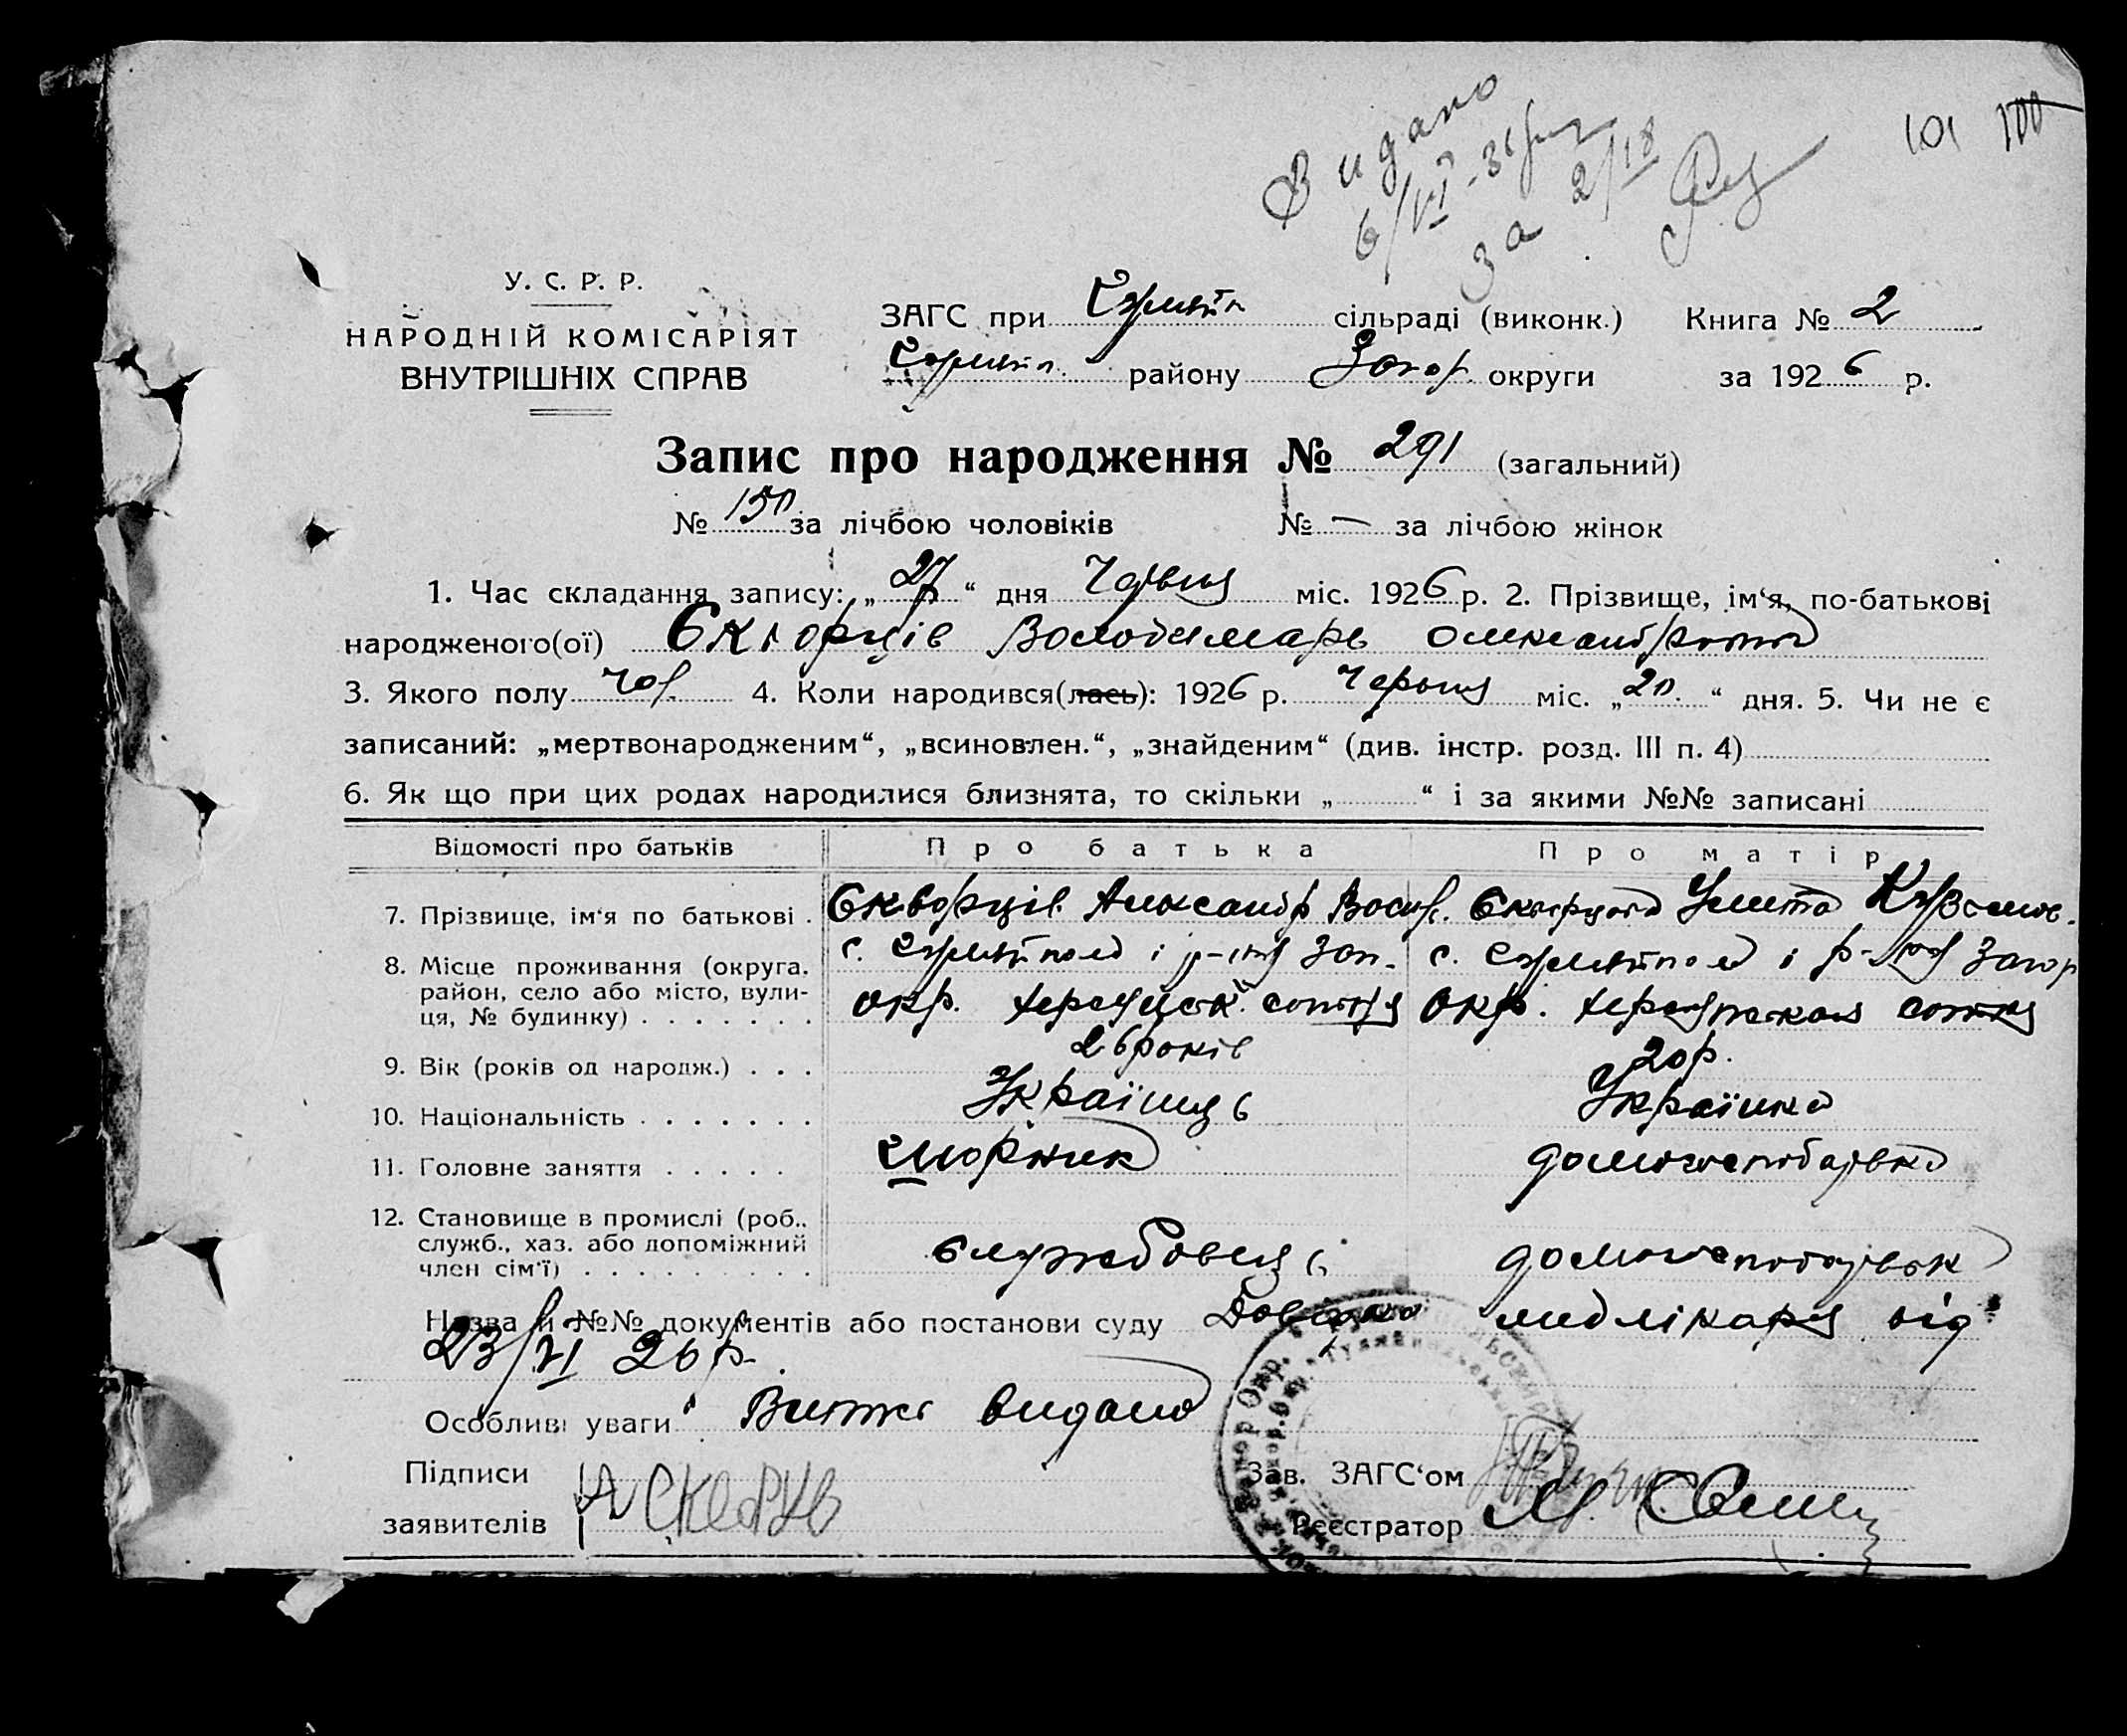 Видано
6/VI-36р
за 2/18
101 100
У. С. Р. Р.
НАРОДНІЙ КОМІСАРІЯТ
ВНУТРІШНІХ СПРАВ
ЗАГС при сільраді (виконк.) Книга № 2
району Запор. округи за 1926 р.
Запис про народження № 291 (загальний)
№ 150 за лічбою чоловіків № — за лічбою жінок
1. Час складання запису: „27“ дня Червня міс. 1926 р. 2. Прізвище, ім‘я, по-батькові
народженого(ої) Скворців Володимарь
3. Якого полу чол. 4. Коли народився(лась): 1926 р. Червня міс. „20.“ дня. 5. Чи не є
записаний: „мертвонародженим“, „всиновлен.“, „знайденим“ (див. інстр. розд. III п. 4)
6. Як що при цих родах народилися близнята, то скільки „ “ і за якими №№ записані
Відомості про батьків Про батька Про матір
7. Прізвище, ім‘я по батькові . Скворців Александр Скворцова
8. Місце проживання (округа, с. і Зап. с. і Запор
район, село або місто, вули- окр. сотня окр. сотня
ця, № будинку) . . . . . . .
9. Вік (років од народж.) . . . 26 років 20 р.
10. Національність . . . . . . . Українць Українка
11. Головне заняття . . . . . домогосподарка
12. Становище в промислі (роб.,
служб., хаз. або допоміжний службовець
член сім‘ї) . . . . . . . . .
Назва й №№ документів або постанови суду Довідка медлікаря від
23/VI 26 р.
Особливі уваги Витяг видано
Підписи Зав. ЗАГС‘ом
заявителів Реєстратор